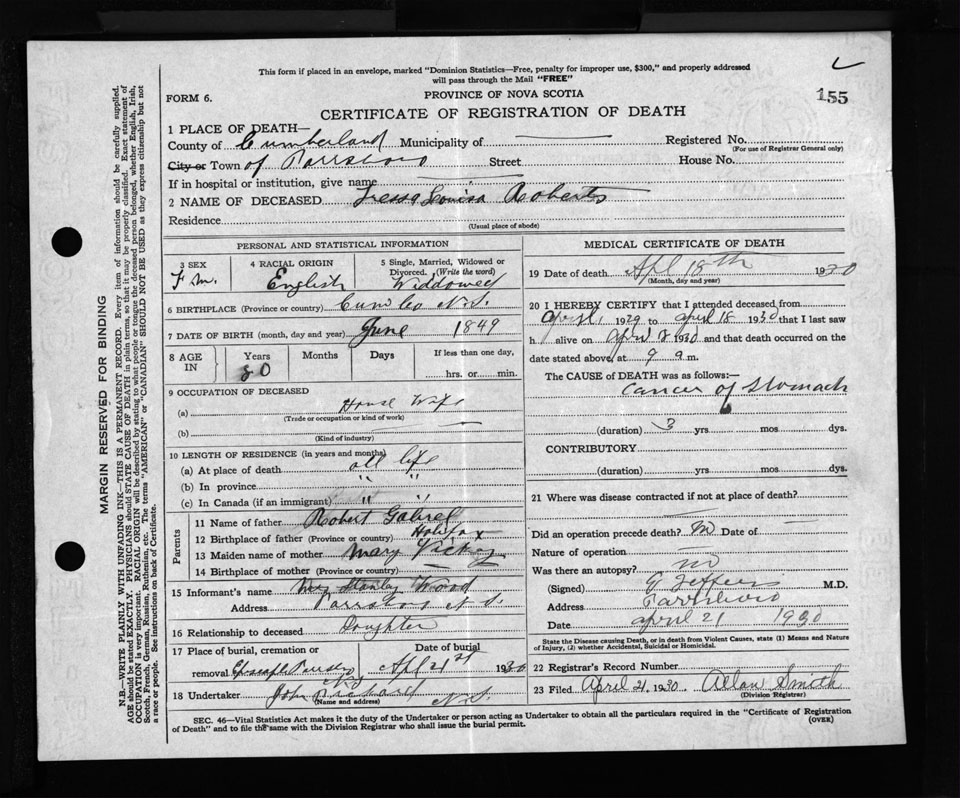 This form if placed in an envelope, marked "Dominion Statistics—Free, penalty for improper use, $300," and properly addressed
will pass through the Mail "FREE"
155
FORM 6.
PROVINCE OF NOVA SCOTIA
CERTIFICATE OF REGISTRATION OF DEATH
1 PLACE OF DEATH—
County of Cumberland Municipality of Registered No.
(For use of Registrar General only)
City or Town of Parrsboro Street House No.
If in hospital or institution, give name
2 NAME OF DECEASED Louisa Roberts
Residence
(Usual place of abode)
PERSONAL AND STATISTICAL INFORMATION
3 SEX 4 RACIAL ORIGIN 5 Single, Married, Widowed or
Divorced. (Write the word)
Fm. English Widdowed
6 BIRTHPLACE (Province or country) Cum Co N.S.
7 DATE OF BIRTH (month, day and year) June 1849
8 AGE IN Years Months Days If less than one day,
80 hrs. or min.
9 OCCUPATION OF DECEASED
(a) House Wife
(Trade or occupation or kind of work)
(b)
(Kind of industry)
10 LENGTH OF RESIDENCE (in years and months)
(a) At place of death all life
(b) In province " "
(c) In Canada (if an immigrant) " "
Parents
11 Name of father Robert Gabriel
12 Birthplace of father (Province or country) Halifax
13 Maiden name of mother Mary
14 Birthplace of mother (Province or country)
15 Informant's name Stanley Wood
Address Parrsboro N.S.
16 Relationship to deceased Doughter
17 Place of burial, cremation or Date of burial
removal Apl 21st 1930
18 Undertaker John N.S.
(Name and address)
MEDICAL CERTIFICATE OF DEATH
19 Date of death Apl 18th 1930
(Month, day and year)
20 I HEREBY CERTIFY that I attended deceased from
April, 1929 to April 18 1930 that I last saw
h alive on April 1930 and that death occurred on the
date stated above at 9 a m.
The CAUSE of DEATH was as follows:—
Cancer of Stomach
(duration) 3 yrs mos dys.
CONTRIBUTORY
(duration) yrs mos dys.
21 Where was disease contracted if not at place of death?
Did an operation precede death? no Date of
Nature of operation
Was there an autopsy? no
(Signed) M.D.
Address Parrsboro
Date April 21 1930
State the Disease causing Death, or in death from Violent Causes, state (1) Means and Nature
of Injury, (2) whether Accidental, Suicidal or Homicidal.
22 Registrar's Record Number
23 Filed April 21, 1930 Allan Smith
(Division Registrar)
SEC. 46—Vital Statistics Act makes it the duty of the Undertaker or person acting as Undertaker to obtain all the particulars required in the "Certificate of Registration
of Death" and to file the same with the Division Registrar who shall issue the burial permit.
(OVER)
MARGIN RESERVED FOR BINDING
N.B.—WRITE PLAINLY WITH UNFADING INK—THIS IS A PERMANENT RECORD. Every item of information should be carefully supplied.
AGE should be stated EXACTLY. PHYSICIANS should STATE CAUSE OF DEATH in plain terms, so that it may be properly classified. Exact statement of
OCCUPATION is very important. RACIAL ORIGIN will be described by stating to what people or tongue the deceased person belonged, whether English, Irish,
Scotch, French, German, Russian, Ruthenian, etc. The terms "AMERICAN" or "CANADIAN" SHOULD NOT BE USED as they express citizenship but not
a race or people. See instructions on back of Certificate.